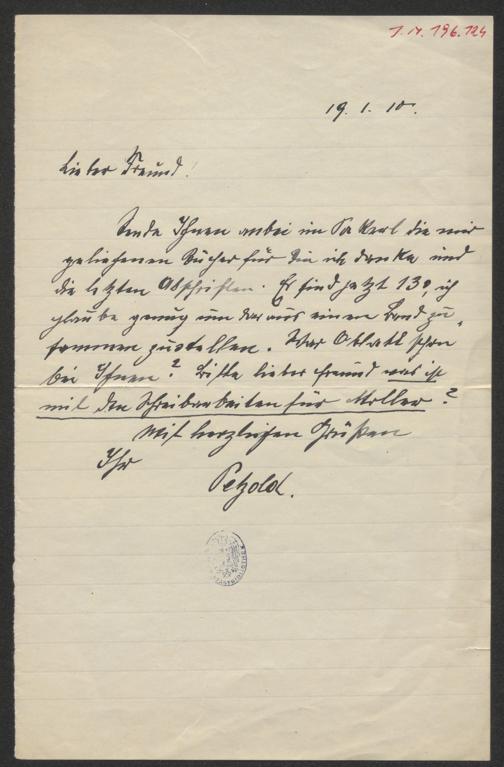 I.N. 196.124
19. 1. 10.
Lieber Freund!
Sende Ihnen anbei im Pakerl die mir
geliehenen Bücher für die ich danke und
die letzten Abschriften. Es sind jetzt 130, ich
glaube genug um daraus einen Band zu
sammen zustellen. War Oblatt schon
bei Ihnen? Bitte lieber Freund was ist
mit den Schreibarbeiten für Moller?
Mit herzlichen Grüßen
Ihr
Petzold.